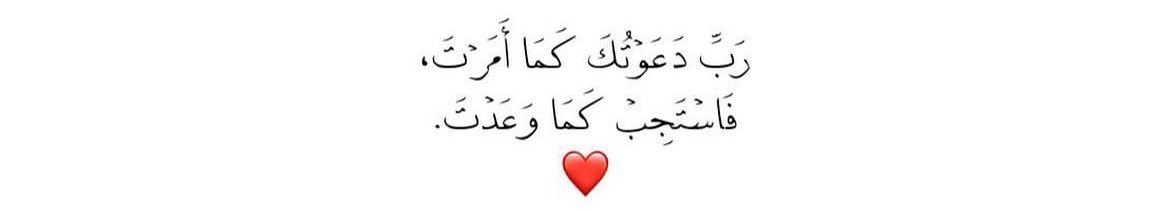 رَبِّ دَعَوْتُكَ كَمَا أَمَرْتَ،
فَاسْتَجِبْ كَمَا وَعَدْتَ.
❤️